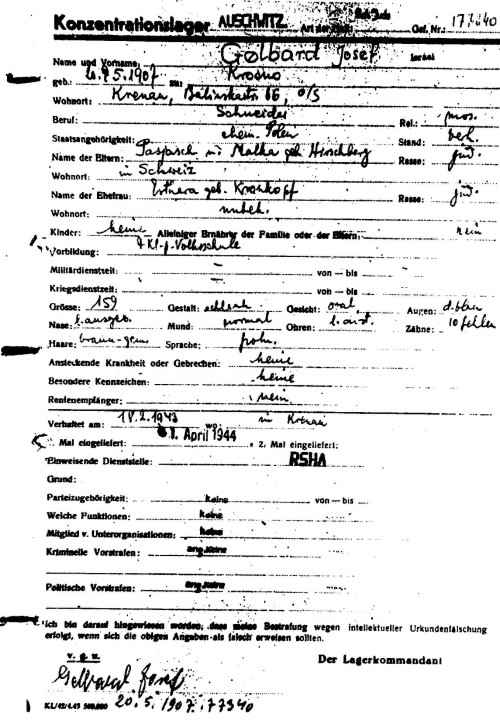 Konzentrationslager AUSCHWITZ Art der Gef. Nr.: 177340
Name und Vorname: Gelbard Josef Israel
geb.: 5. 1907 zu: Krosno
Wohnort: Krenau, 66, O/S
Beruf: Schneider Rel.: mos.
Staatsangehörigkeit: ehem. Polen Stand: verh.
Name der Eltern: Malka geb. Hirschberg Rasse: jüd.
Wohnort: in Schweiz
Name der Ehefrau: geb. Kronkopf Rasse: jüd.
Wohnort: unbek.
Kinder: keine Alleiniger Ernährer der Familie oder der Eltern: nein
Vorbildung: 7 Kl. Volksschule
Militärdienstzeit: von — bis
Kriegsdienstzeit: von — bis
Grösse: 159 Gestalt: schlank Gesicht: oval Augen: d. blau
Nase: l. ausgeb. Mund: normal Ohren: Zähne: 10 fehlen
Haare: braun Sprache: poln.
Ansteckende Krankheit oder Gebrechen: keine
Besondere Kennzeichen: keine
Rentenempfänger: nein
Verhaftet am: 18. 2. 1943 wo: in Krenau
Mal eingeliefert: 1. April 1944 2. Mal eingeliefert:
Einweisende Dienststelle: RSHA
Grund:
Parteizugehörigkeit: keine von — bis
Welche Funktionen: keine
Mitglied v. Unterorganisationen: keine
Kriminelle Vorstrafen: ang. keine
Politische Vorstrafen: ang. keine
Ich bin darauf hingewiesen worden, dass meine Bestrafung wegen intellektueller Urkundenfälschung
erfolgt, wenn sich die obigen Angaben als falsch erweisen sollten.
v. g. u. Der Lagerkommandant
Gelbard Josef
KL/42/4.43 500.000 20. 5. 1907. 77340